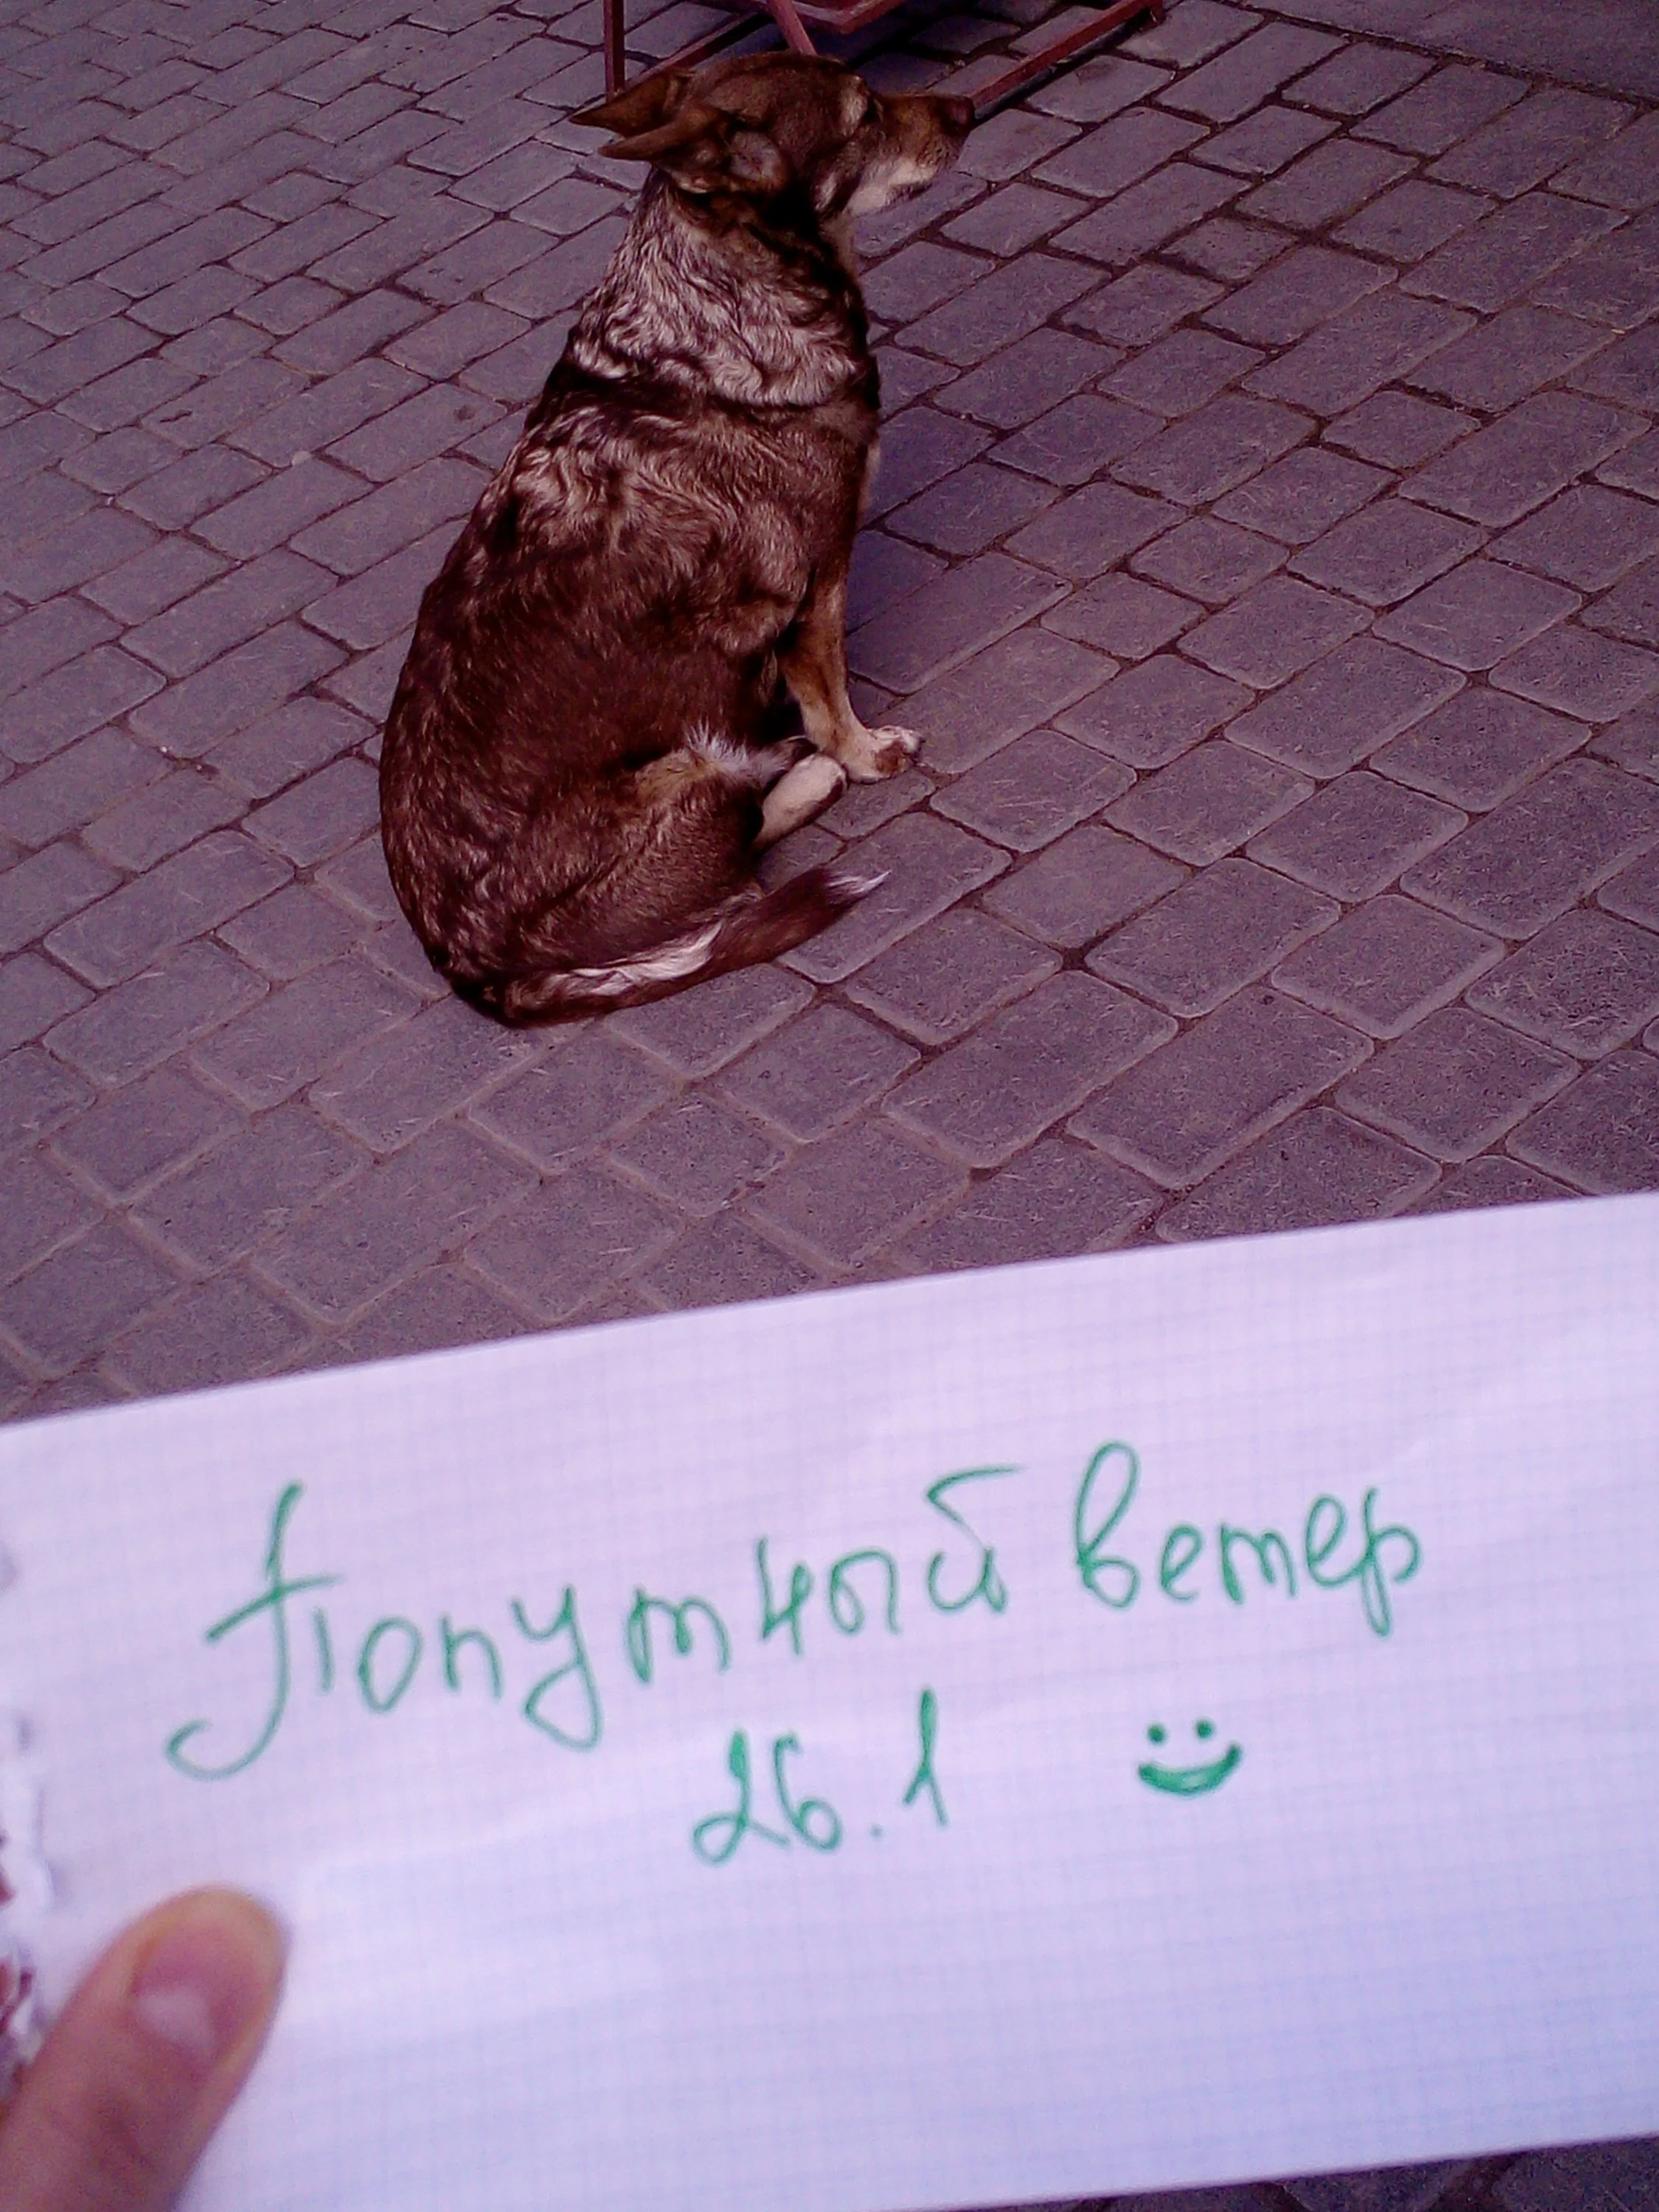 Попутный ветер
26.1